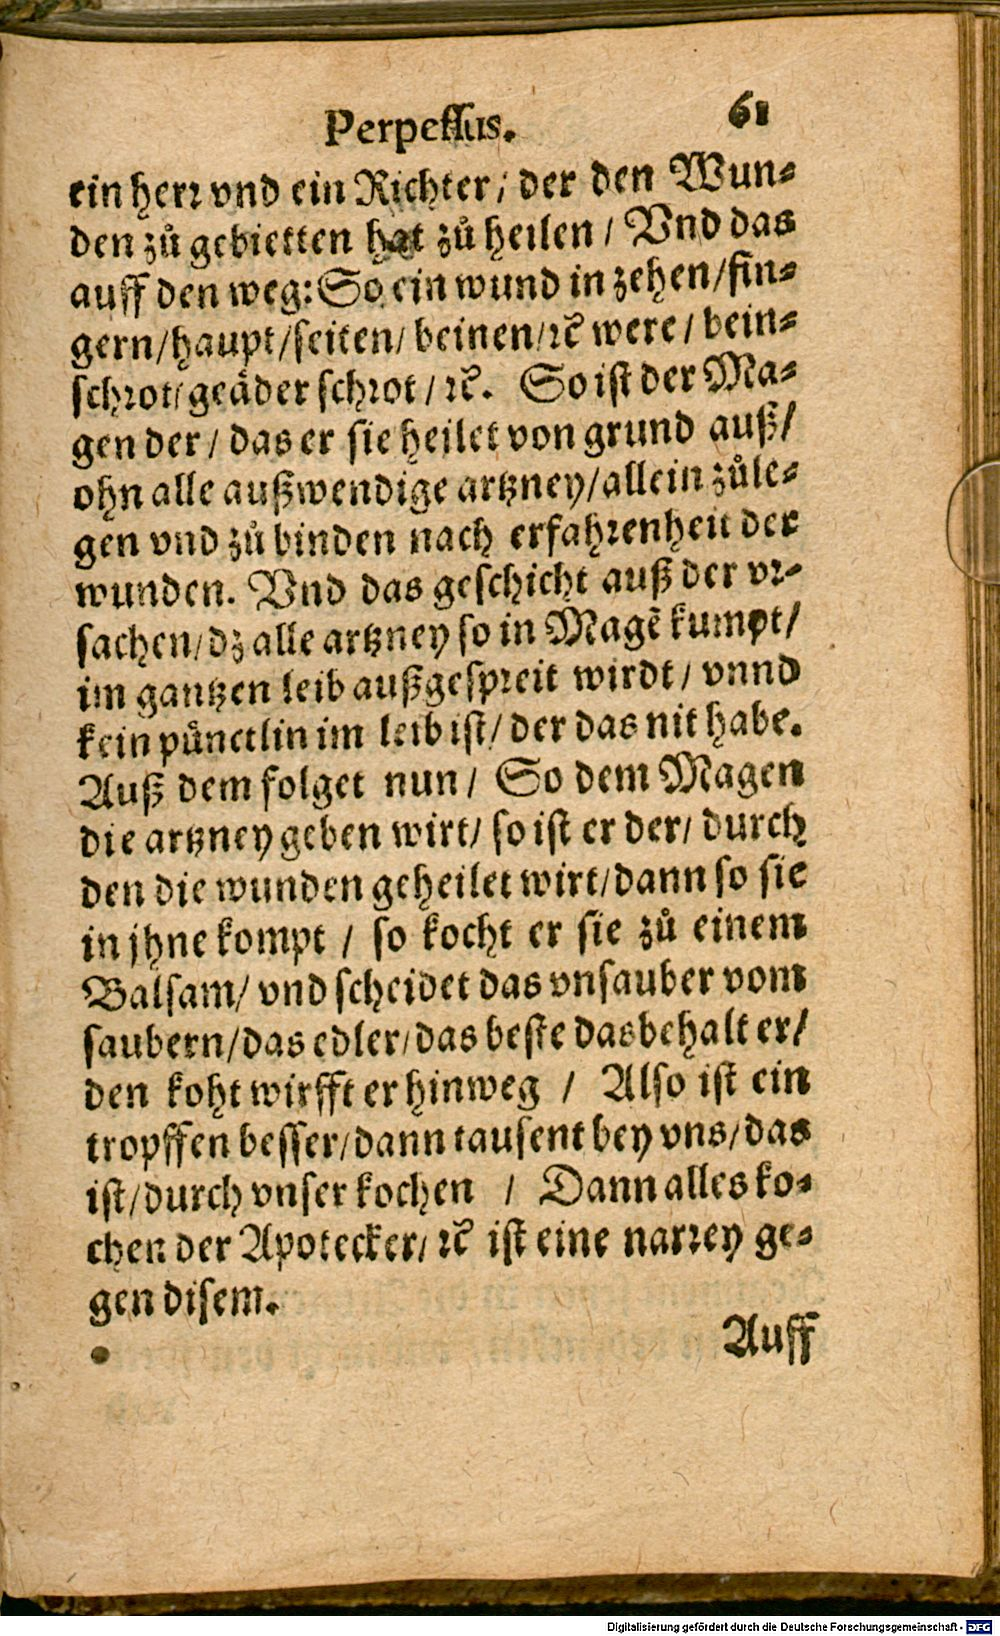 Perpessus. 61
ein herr vnd ein Richter / der den Wun-
den zů gebietten hat zů heilen / Vnd das
auff den weg: So ein wund in zehen / fin-
gern / haupt / seiten / beinen / ꝛc̃ were / bein-
schrot / geäder schrot / ꝛc̃. So ist der Ma-
gen der / das er sie heilet von grund auß /
ohn alle außwendige artzney / allein zůle-
gen vnd zů binden nach erfahrenheit der
wunden. Vnd das geschicht auß der vr-
sachen / dz alle artzney so in Magẽ kumpt /
im gantzen leib außgespreit wirdt / vnnd
kein pünctlin im leib ist / der das nit habe.
Auß dem folget nun / So dem Magen
die artzney geben wirt / so ist er der / durch
den die wunden geheilet wirt / dann so sie
in jhne kompt / so kocht er sie zů einem
Balsam / vnd scheidet das vnsauber vom
saubern / das edler / das beste das behalt er /
den koht wirfft er hinweg / Also ist ein
tropffen besser / dann tausent bey vns / das
ist / durch vnser kochen / Dann alles ko-
chen der Apotecker / ꝛc̃ ist eine narrey ge-
gen disem.
Auff
Digitalisierung gefördert durch die Deutsche Forschungsgemeinschaft - DFG